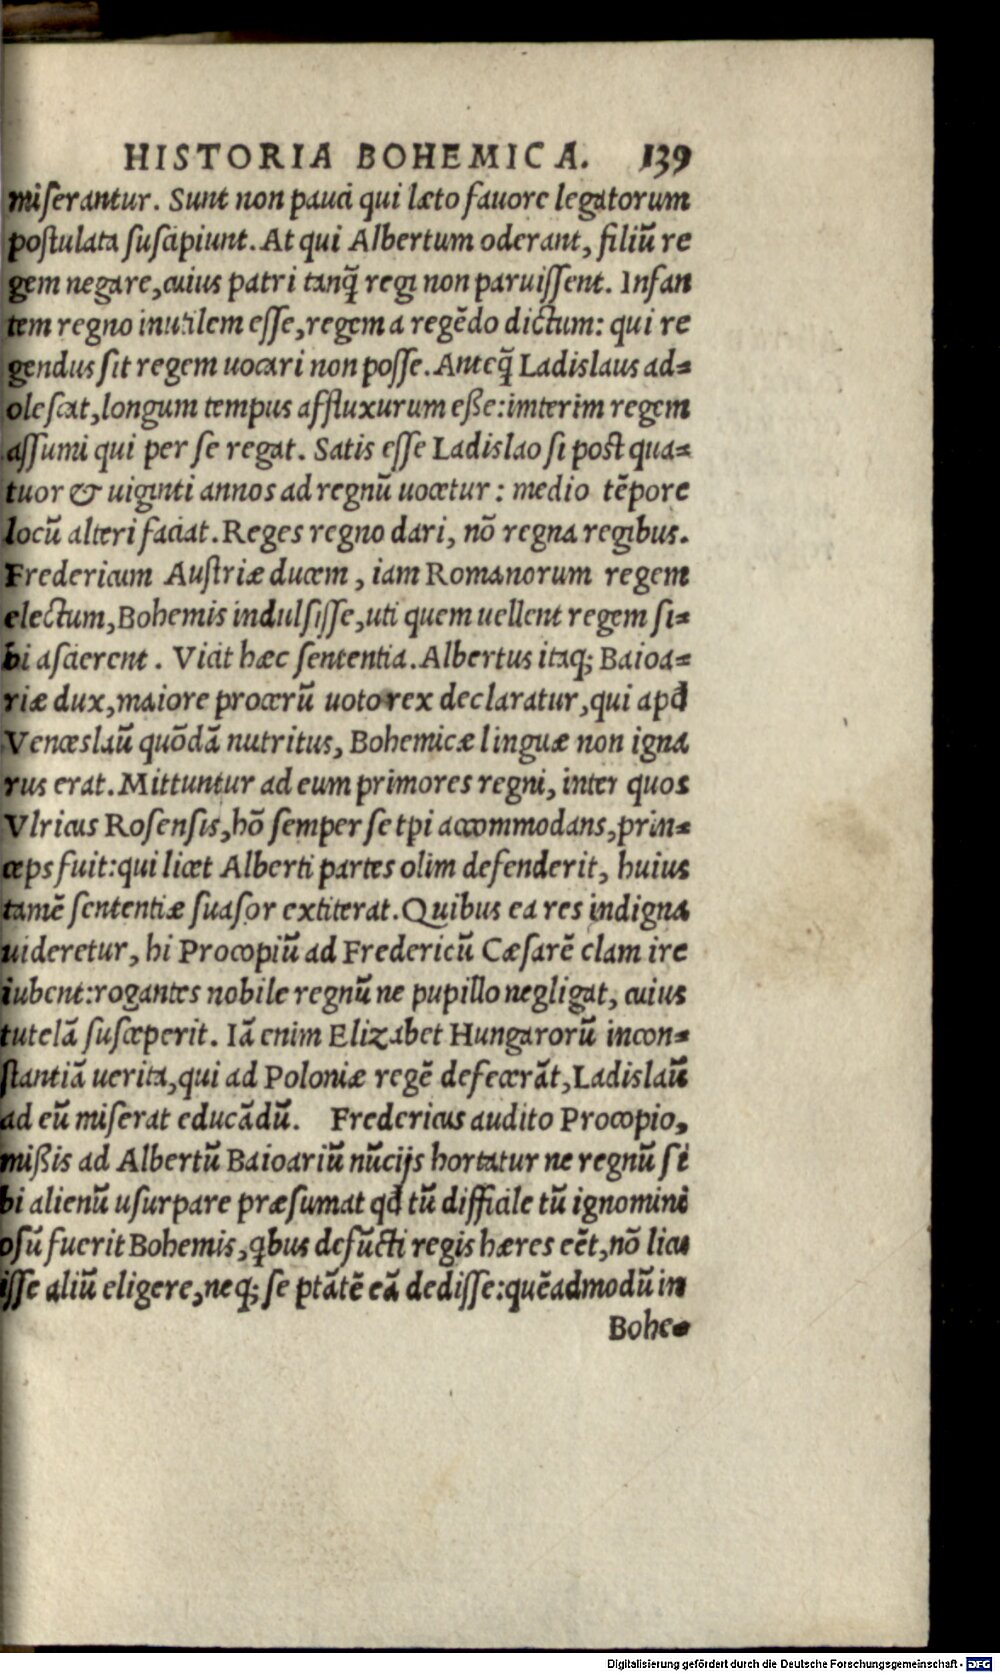 HISTORIA BOHEMICA. 139
miserantur. Sunt non pauci qui læto fauore legatorum
postulata suscipiunt. At qui Albertum oderant, filiū re
gem negare, cuius patri tanq̃ regi non paruissent. Infan
tem regno inutilem esse, regem a regēdo dictum: qui re
gendus sit regem uocari non posse. Anteq̃ Ladislaus ad=
olescat, longum tempus affluxurum eße: imterim regem
assumi qui per se regat. Satis esse Ladislao si post qua=
tuor & uiginti annos ad regnū uocetur: medio tēpore
locū alteri faciat. Reges regno dari, nō regna regibus.
Fredericum Austriæ ducem, iam Romanorum regem
electum, Bohemis indulsisse, uti quem uellent regem si=
bi ascierent. Vicit hæc sententia. Albertus itaq; Baioa=
riæ dux, maiore procerū uoto rex declaratur, qui apđ
Venceslaū quōdā nutritus, Bohemicæ linguæ non igna
rus erat. Mittuntur ad eum primores regni, inter quos
Vlricus Rosensis, hō semper se tpi accommodans, prin=
ceps fuit: qui licet Alberti partes olim defenderit, huius
tamē sententiæ suasor extiterat. Quibus ea res indigna
uideretur, hi Procopiū ad Fredericū Cæsarē clam ire
iubent: rogantes nobile regnū ne pupillo negligat, cuius
tutelā susceperit. Iā enim Elizabet Hungarorū incon=
stantiā uerita, qui ad Poloniæ regē defecerāt, Ladislaū
ad eū miserat educādū. Fredericus audito Procopio,
mißis ad Albertū Baioariū nūcijs hortatur ne regnū si
bi alienū usurpare præsumat qđ tū difficile tū ignomini
osū fuerit Bohemis, qbus defūcti regis hæres eēt, nō licu
isse aliū eligere, neq; se ptātē eā dedisse: quēadmodū in
Bohe=
Digitalisierung gefördert durch die Deutsche Forschungsgemeinschaft - DFG